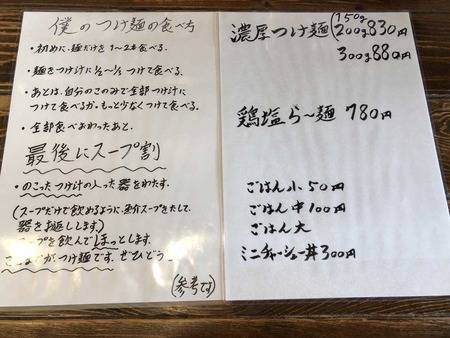 僕のつけ麺の食べ方
・初めに、麺だけを1〜2本食べる。
・麺をつけ汁に1/2〜1/3つけて食べる。
・あとは、自分のこのみで全部つけ汁に
つけて食べるか、もっと少なくつけて食べる。
・全部食べおわったあと、
最後にスープ割
・のこったつけ汁の入った器をわたす。
(スープだけで飲めるように、魚介スープをたして、
器をお返しします)
スープを飲んでほっとします。
ここまでがつけ麺です。ぜひどうぞ
(参考です)
濃厚つけ麺 150g 200g 830円
300g 880円
鶏塩らーめん 780円
ごはん小 50円
ごはん中 100円
ごはん大
ミニチャーシュー丼 300円